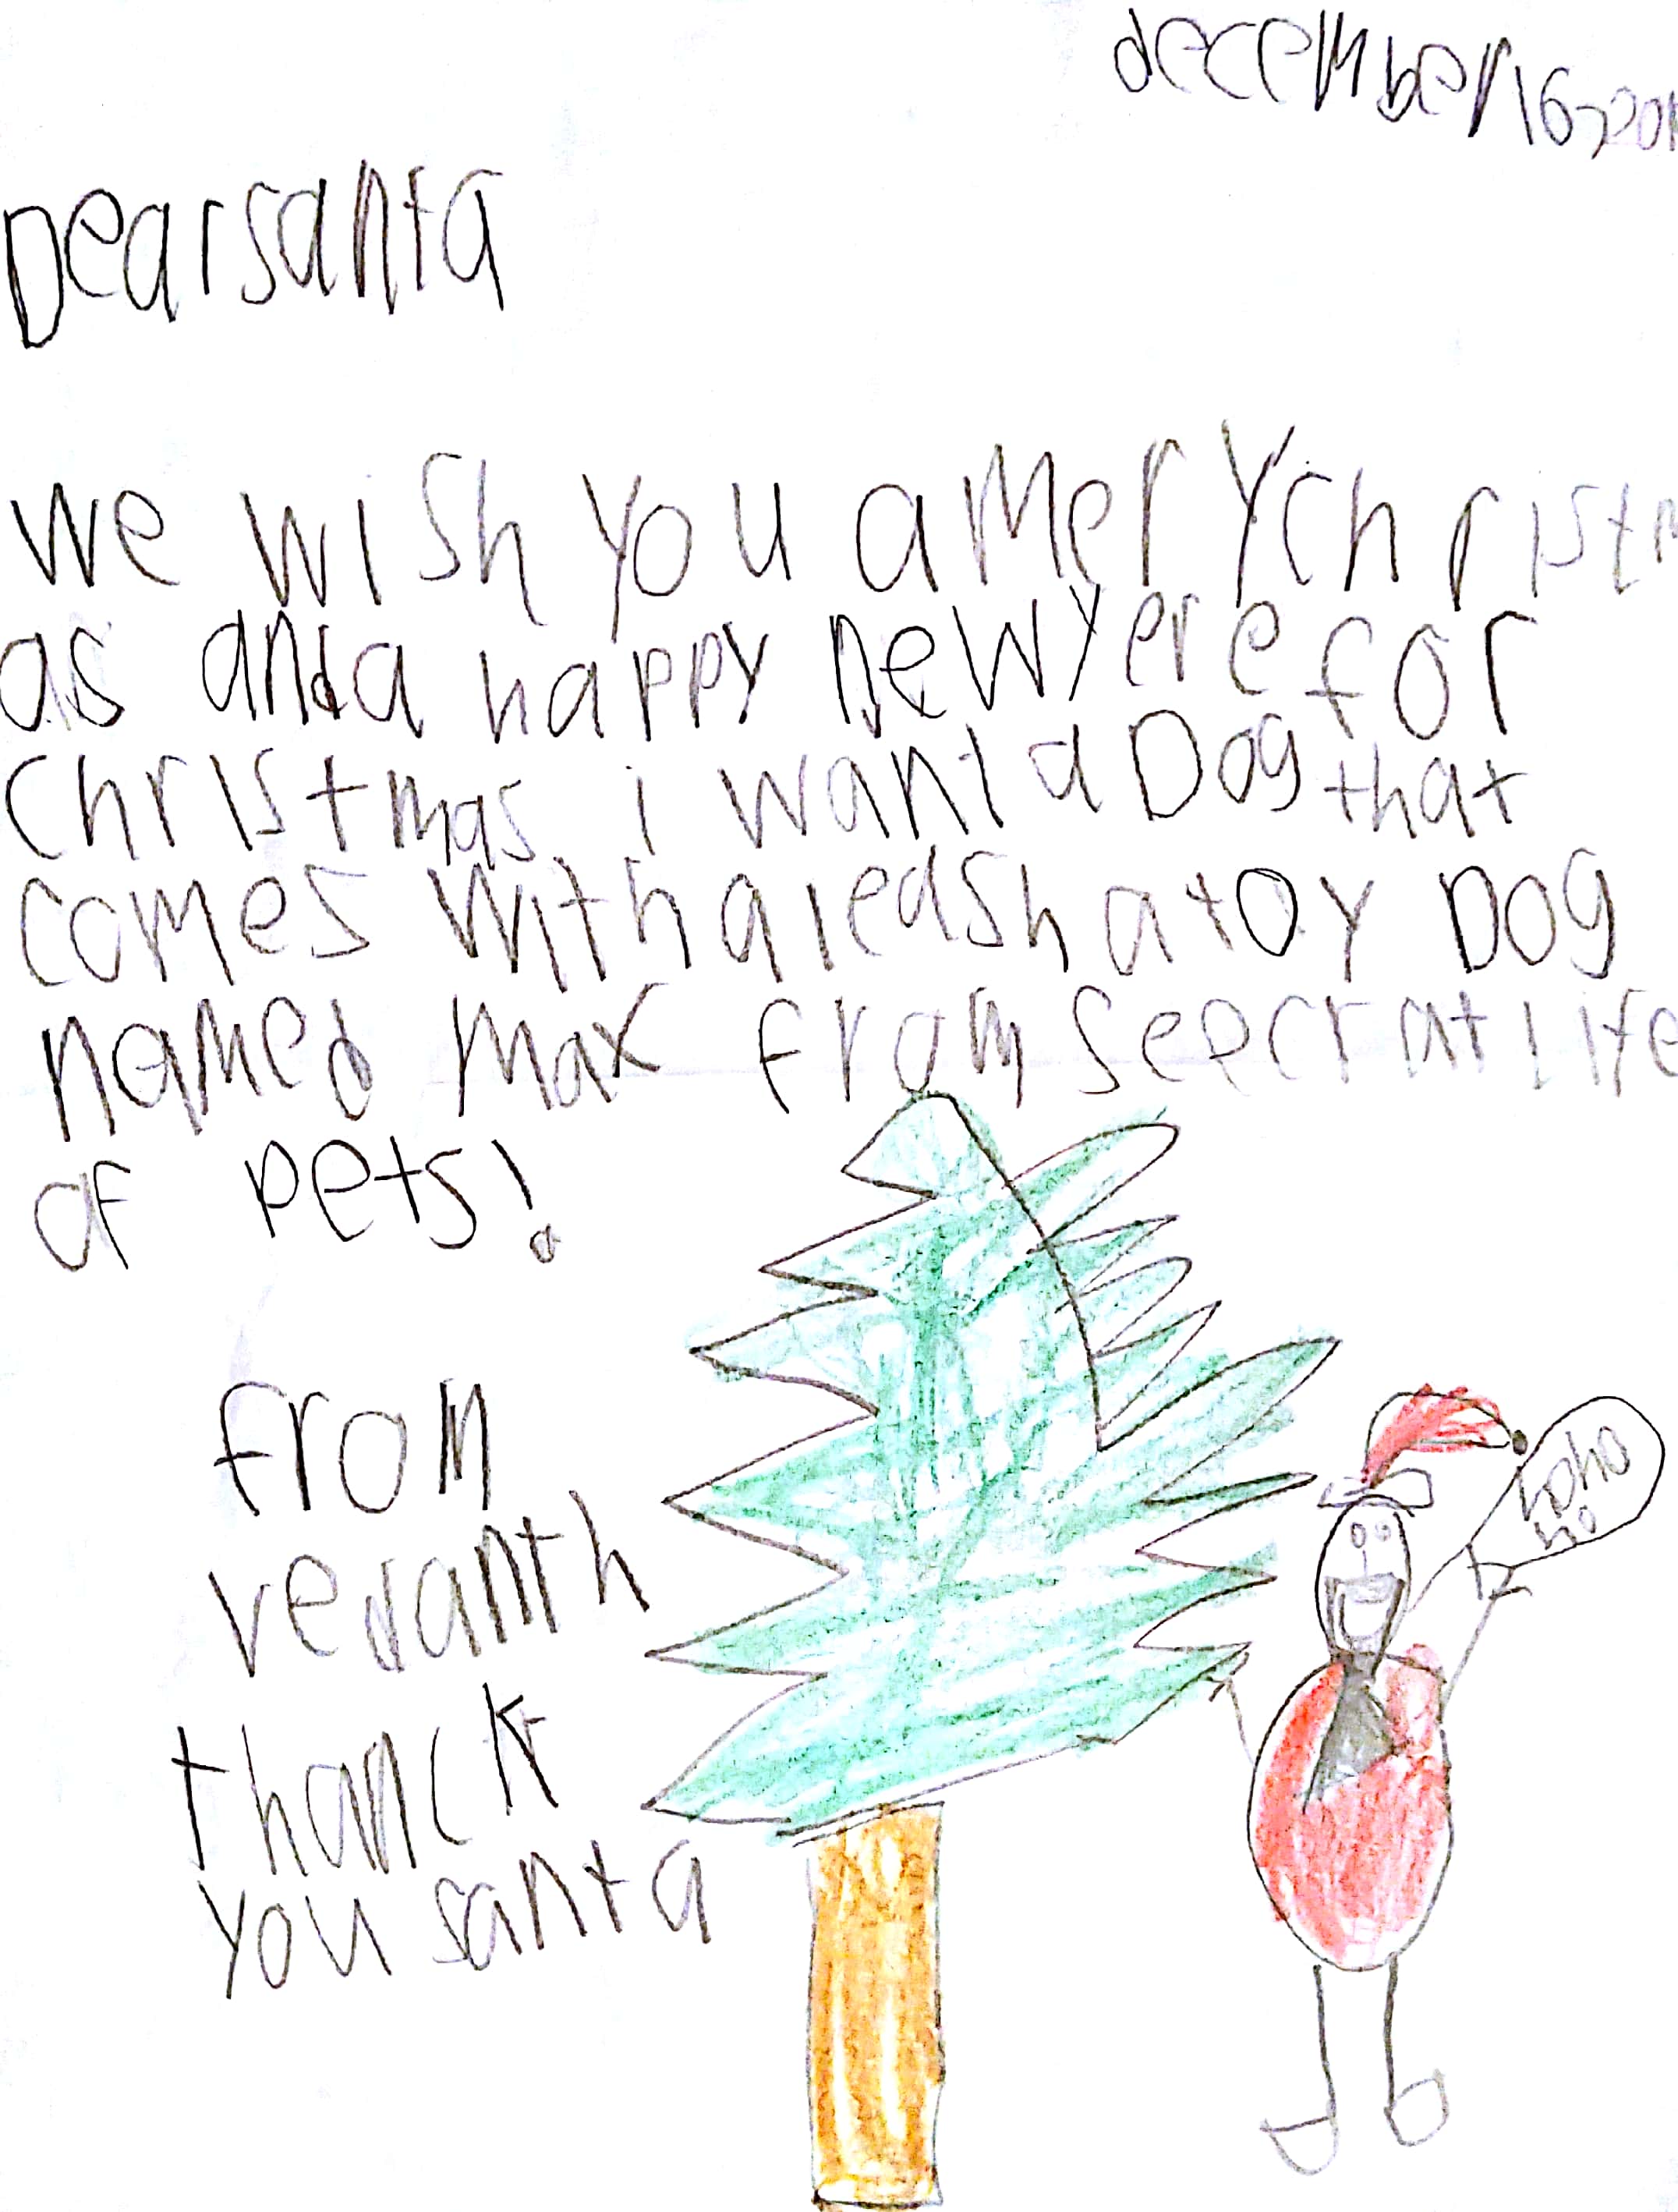 december 16, 201
Dear santa
We wish you a mery christm
as and a happy new yere for
christmas i want a Dog that
comes with a leash a toy Dog
named max from seecrat life
of pets!
from
vedanth
thanck
you santa
hoho
ho